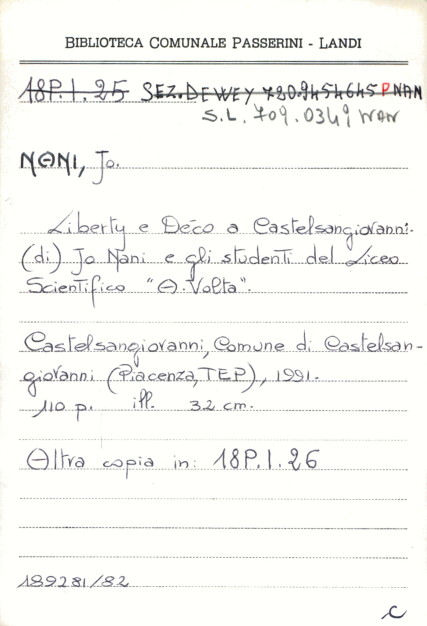 BIBLIOTECA COMUNALE PASSERINI - LANDI
18P.I.25 SEZ. DEWEY 720.9454645 P NAN
S.L. 709.0349 NAN
NANI, Jo.
Liberty e Déco a Castelsangiovanni.
(di) Jo Nani e gli studenti del Liceo
Scientifico "A. Volta".
Castelsangiovanni, Comune di Castelsan-
giovanni (Piacenza, TEP), 1991.
110 p. ill. 32 cm.
Altra copia in: 18P.I.26
189281/82
C